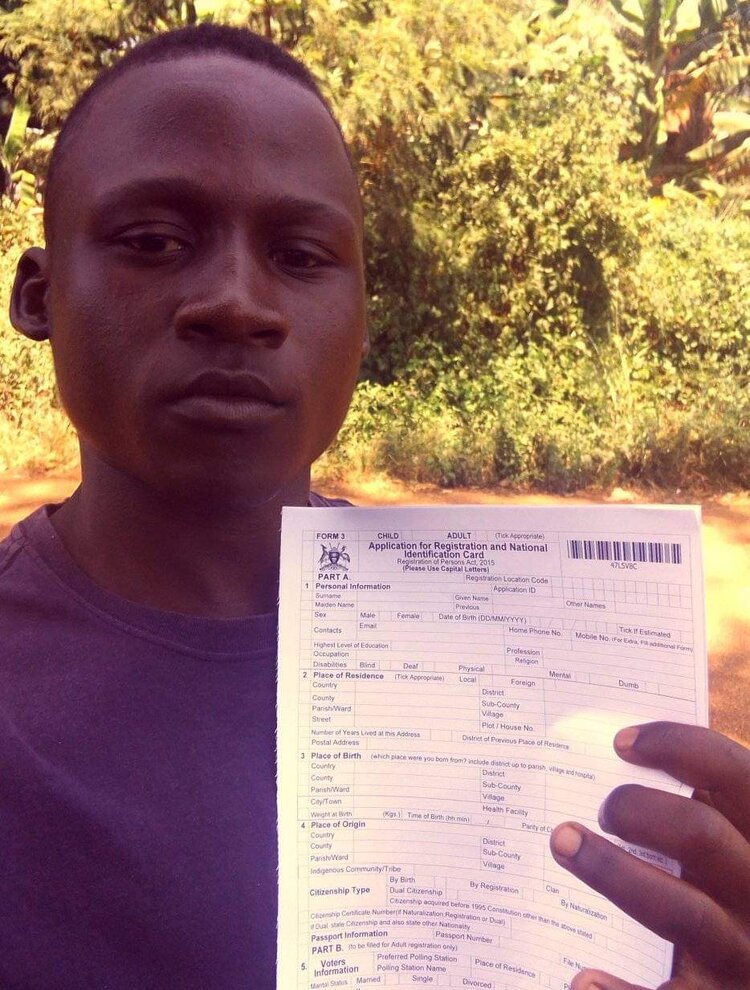 FORM 3 CHILD ADULT (Tick Appropriate)
Application for Registration and National
Identification Card
Registration of Persons Act, 2015
(Please Use Capital Letters)
47LSV8C
PART A.
Registration Location Code
1 Personal Information Application ID
Surname Given Name Other Names
Maiden Name Previous
Sex Male Female Date of Birth (DD/MM/YYYY) Tick If Estimated
Contacts Email Home Phone No. Mobile No. (For Extra, Fill additional Form)
Highest Level of Education Profession
Occupation Religion
Disabilities Blind Deaf Physical Mental Dumb
2 Place of Residence (Tick Appropriate) Local Foreign
Country District
County Sub-County
Parish/Ward Village
Street Plot / House No.
Number of Years Lived at this Address District of Previous Place of Residence
Postal Address
3 Place of Birth (which place were you born from? include district up to parish, village and hospital)
Country District
County Sub-County
Parish/Ward Village
City/Town Health Facility
Weight at Birth (Kgs.) Time of Birth (hh:mm) / Parity of
4 Place of Origin
Country District
County Sub-County
Parish/Ward Village
Indigenous Community/Tribe Clan
Citizenship Type By Birth By Registration By Naturalization
Dual Citizenship
Citizenship acquired before 1995 Constitution other than the above stated
Citizenship Certificate Number(if Naturalization, Registration or Dual)
If Dual, state Citizenship and also state other Nationality
Passport Information Passport Number File
PART B. (to be filled for Adult registration only)
5. Voters Information Preferred Polling Station Place of Residence
Polling Station Name
Marital Status Married Single Divorced